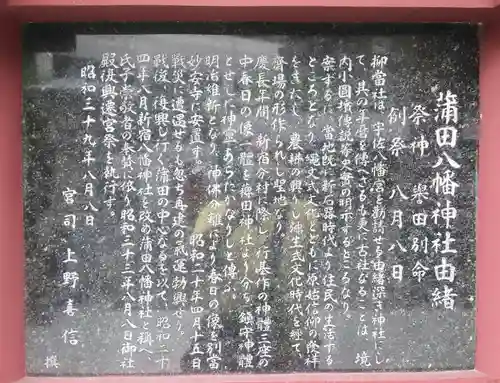 蒲田八幡神社由緒
祭神 誉田別命
例祭 八月八日
抑當社は、宇佐八幡宮を勧請せる由緒深き神社にし
て、其の年暦を傳へざるも更に古社なることは、境
内小圓墳傳説等史書の明示するところなり。
案ずるに、當地既に新石器時代より住民の生活する
ところとなり、縄文式文化とともに原始信仰の発祥
をきたし、農耕の興りし弥生式文化時代を経て、
齋場の形作られし聖地なり。
慶長年間、新宿分村に際し、行基作の神體三座の
中春日の像一體を稗田神社より分ち、鎮守神體
とせしに神霊あらたかなりしと傳ふ。
明治維新となり、神佛分離により春日の像は別當
妙安寺に安置す。 昭和二十年四月十五日
戦災に遭遇せるも忽ち再建の氣運勃興せり。
戦後、復興し行く蒲田の中心なるを以て、昭和二十
四年八月新宿八幡神社を改め蒲田八幡神社と稱へ、
氏子崇敬者の奉賛に依り昭和三十三年八月八日御社
殿復興遷宮祭を執行す。
昭和三十九年八月八日
宮司 上野喜信 撰